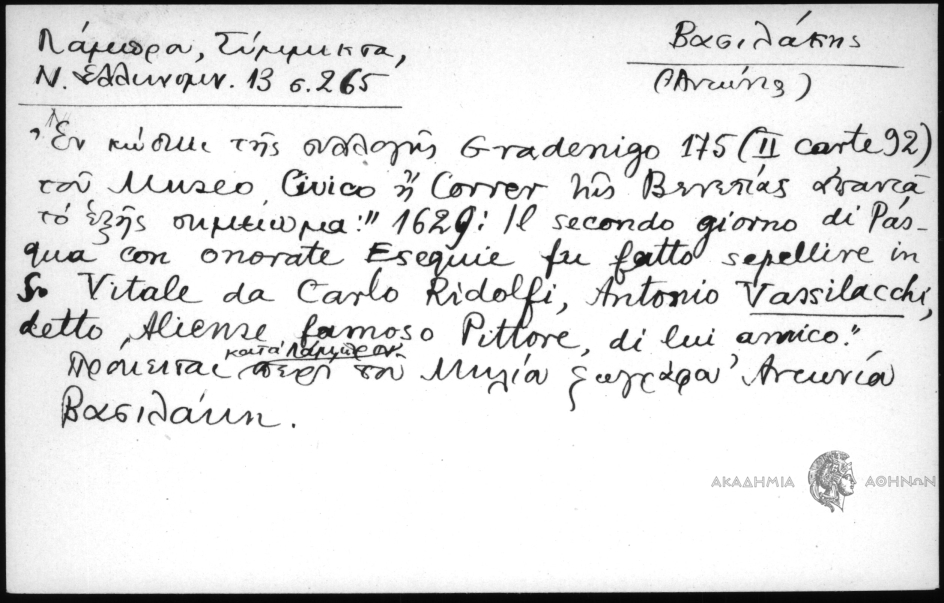 Λάμπρου, Σύμμικτα,
Ν. Ἑλληνομν. 13 σ. 265
Βασιλάκης
(Ἀντώνιος)
"Ἐν κώδικι τῆς συλλογῆς Gradenigo 175 (II carte 92)
τοῦ Museo Civico ἢ Correr τῆς Βενετίας ἀπαντᾷ
τὸ ἑξῆς σημείωμα: "1629: Il secondo giorno di Pás-
qua con onorate Esequie fu fatto sepellire in
S. Vitale da Carlo Ridolfi, Antonio Vassilacchi,
detto Aliense famoso Pittore, di lui amico."
Πρόκειται κατὰ Λάμπρον περὶ τοῦ Μηλίου ζωγράφου Ἀντωνίου
Βασιλάκη.
ΑΚΑΔΗΜΙΑ ΑΘΗΝΩΝ